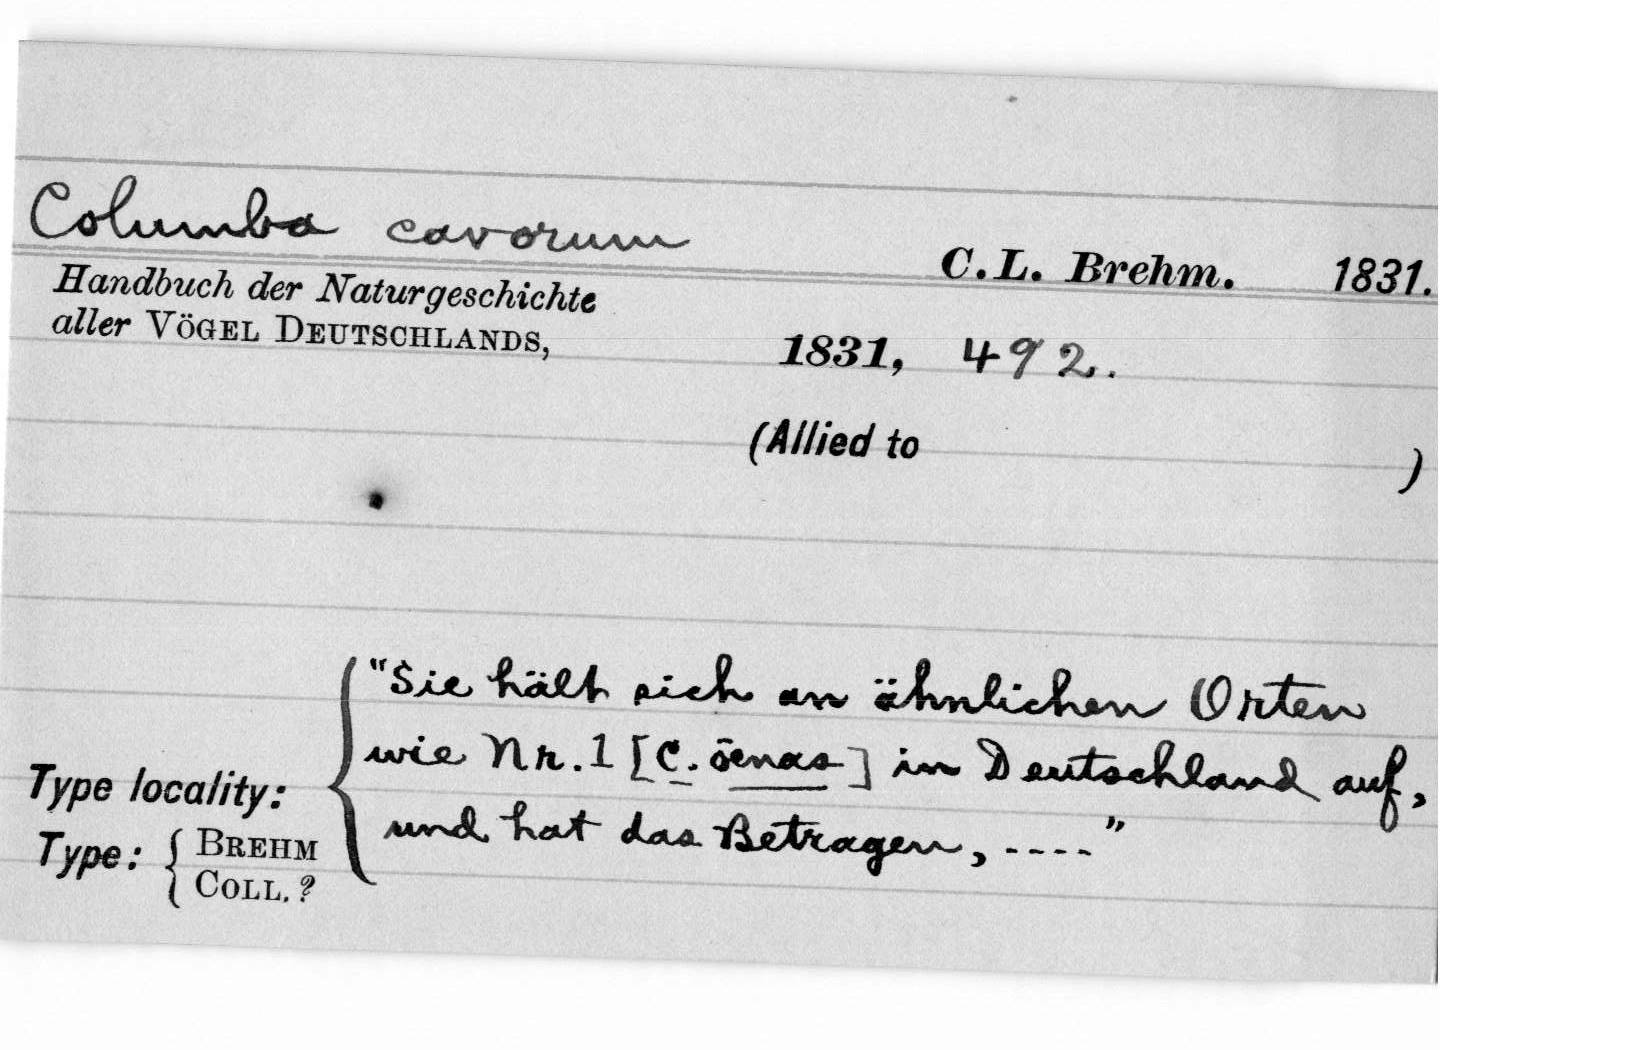 Columba cavorum
C.L. Brehm. 1831.
Handbuch der Naturgeschichte
aller VÖGEL DEUTSCHLANDS,
1831, 492.
(Allied to )
"Sie hält sich an ähnlichen Orten
wie Nr. 1 [C. öenas] in Deutschland auf,
und hat das Betragen, ----"
Type locality:
Type: { BREHM
COLL. ?